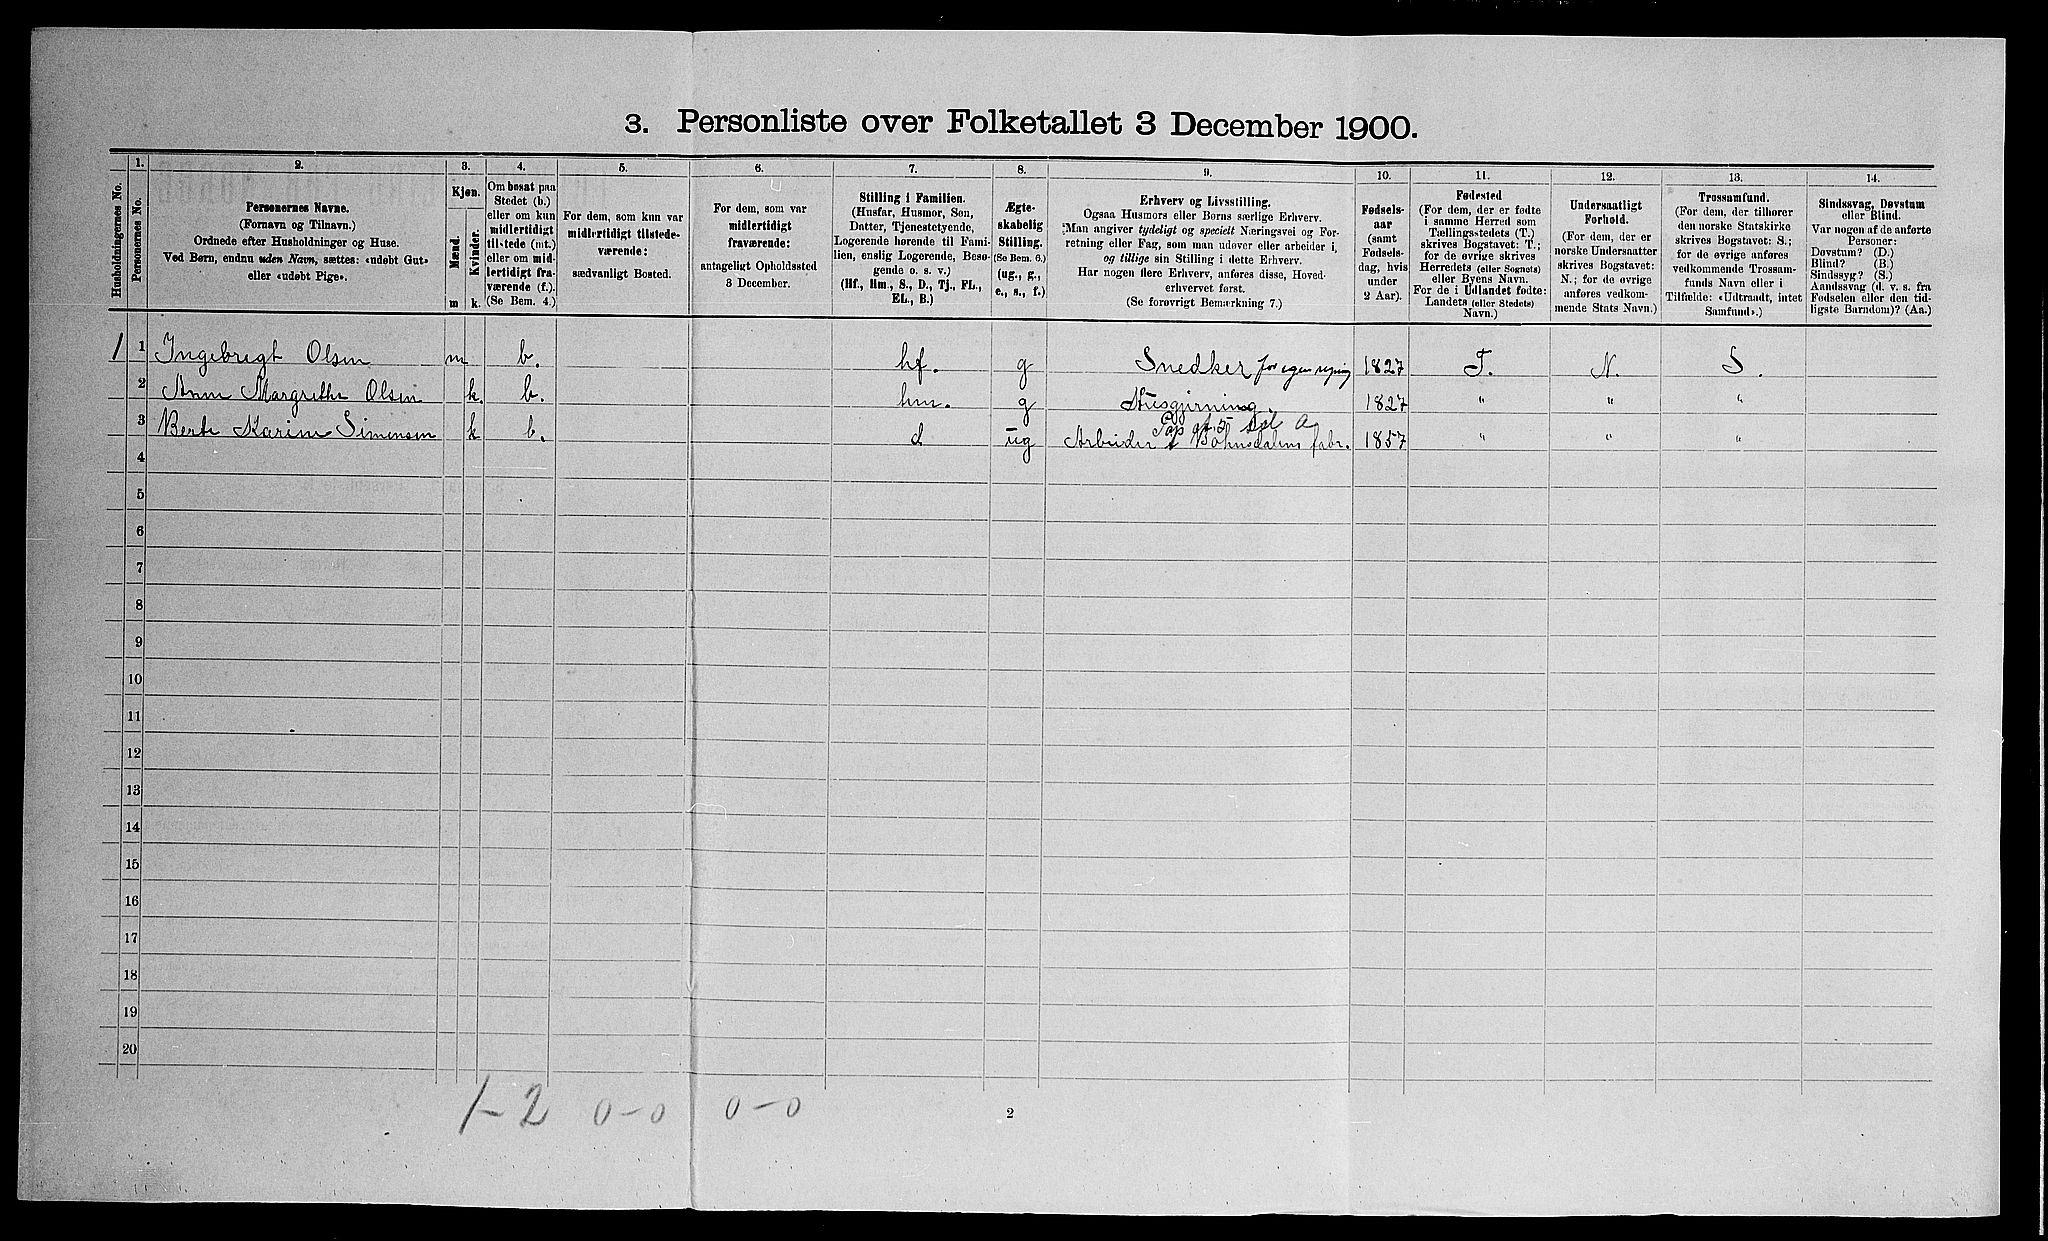 3. Personliste over Folketallet 3 December 1900.
Husholdningernes No.
1.
Personernes No.
2.
Personernes Navne.
(Fornavn og Tilnavn.)
Ordnede efter Husholdninger og Huse.
Ved Børn, endnu uden Navn, sættes: «udøbt Gut»
eller «udøbt Pige».
3.
Kjøn.
Mænd.
Kvinder.
m
k.
4.
Om bosat paa
Stedet (b.)
eller om kun
midlertidigt
tilstede (mt.)
eller om mid-
lertidigt fra-
værende (f.).
(Se Bem. 4.)
5.
For dem, som kun var
midlertidigt tilstede-
værende:
sædvanligt Bosted.
6.
For dem, som var
midlertidigt
fraværende:
antageligt Opholdssted
3 December.
7.
Stilling i Familien.
(Husfar, Husmor, Søn,
Datter, Tjenestetyende,
Logerende hørende til Fami-
lien, enslig Logerende, Besø-
gende o. s. v.)
(Hf., Hm., S., D., Tj., FL.,
EL., B.)
8.
Ægte-
skabelig
Stilling.
(Se Bem. 6.)
(ug., g.,
e., s., f.)
9.
Erhverv og Livsstilling.
Ogsaa Husmors eller Børns særlige Erhverv.
Man angiver tydeligt og specielt Næringsvei og For-
retning eller Fag, som man udøver eller arbeider i,
og tillige sin Stilling i dette Erhverv.
Har nogen flere Erhverv, anføres disse, Hoved-
erhvervet først.
(Se forøvrigt Bemærkning 7.)
10.
Fødsels-
aar
(samt
Fødsels-
dag, hvis
under
2 Aar).
11.
Fødested
(For dem, der er fødte
i samme Herred som
Tællingsstedets (T.)
skrives Bogstavet: T.;
for de øvrige skrives
Herredets (eller Sognets)
eller Byens Navn.
For de i Udlandet fødte:
Landets (eller Stedets)
Navn.)
12.
Undersaatligt
Forhold.
(For dem, der er
norske Undersaatter
skrives Bogstavet:
N.; for de øvrige
anføres vedkom-
mende Stats Navn.)
13.
Trossamfund.
(For dem, der tilhører
den norske Statskirke
skrives Bogstavet: S.;
for de øvrige anføres
vedkommende Trossam-
funds Navn eller i
Tilfælde: «Udtraadt, intet
Samfund».)
14.
Sindssvag, Døvstum
eller Blind.
Var nogen af de anførte
Personer:
Døvstum? (D.)
Blind? (B.)
Sindssyg? (S.)
Aandssvag (d. v. s. fra
Fødselen eller den tid-
ligste Barndom)? (Aa.)
1 1 Ingebregt Olsen m b. hf. g Snedker for egen regning 1827 T. N. S.
2 Anne Margrethe Olsen k. b. hm. g Husgjerning 1827 " " "
3 Berte Karine Simensen k b. d ug Arbeider Bøhnsdalens fabr. 1857 " " "
4
5
6
7
8
9
10
11
12
13
14
15
16
17
18
19
20
1-2 0-0 0-0
2